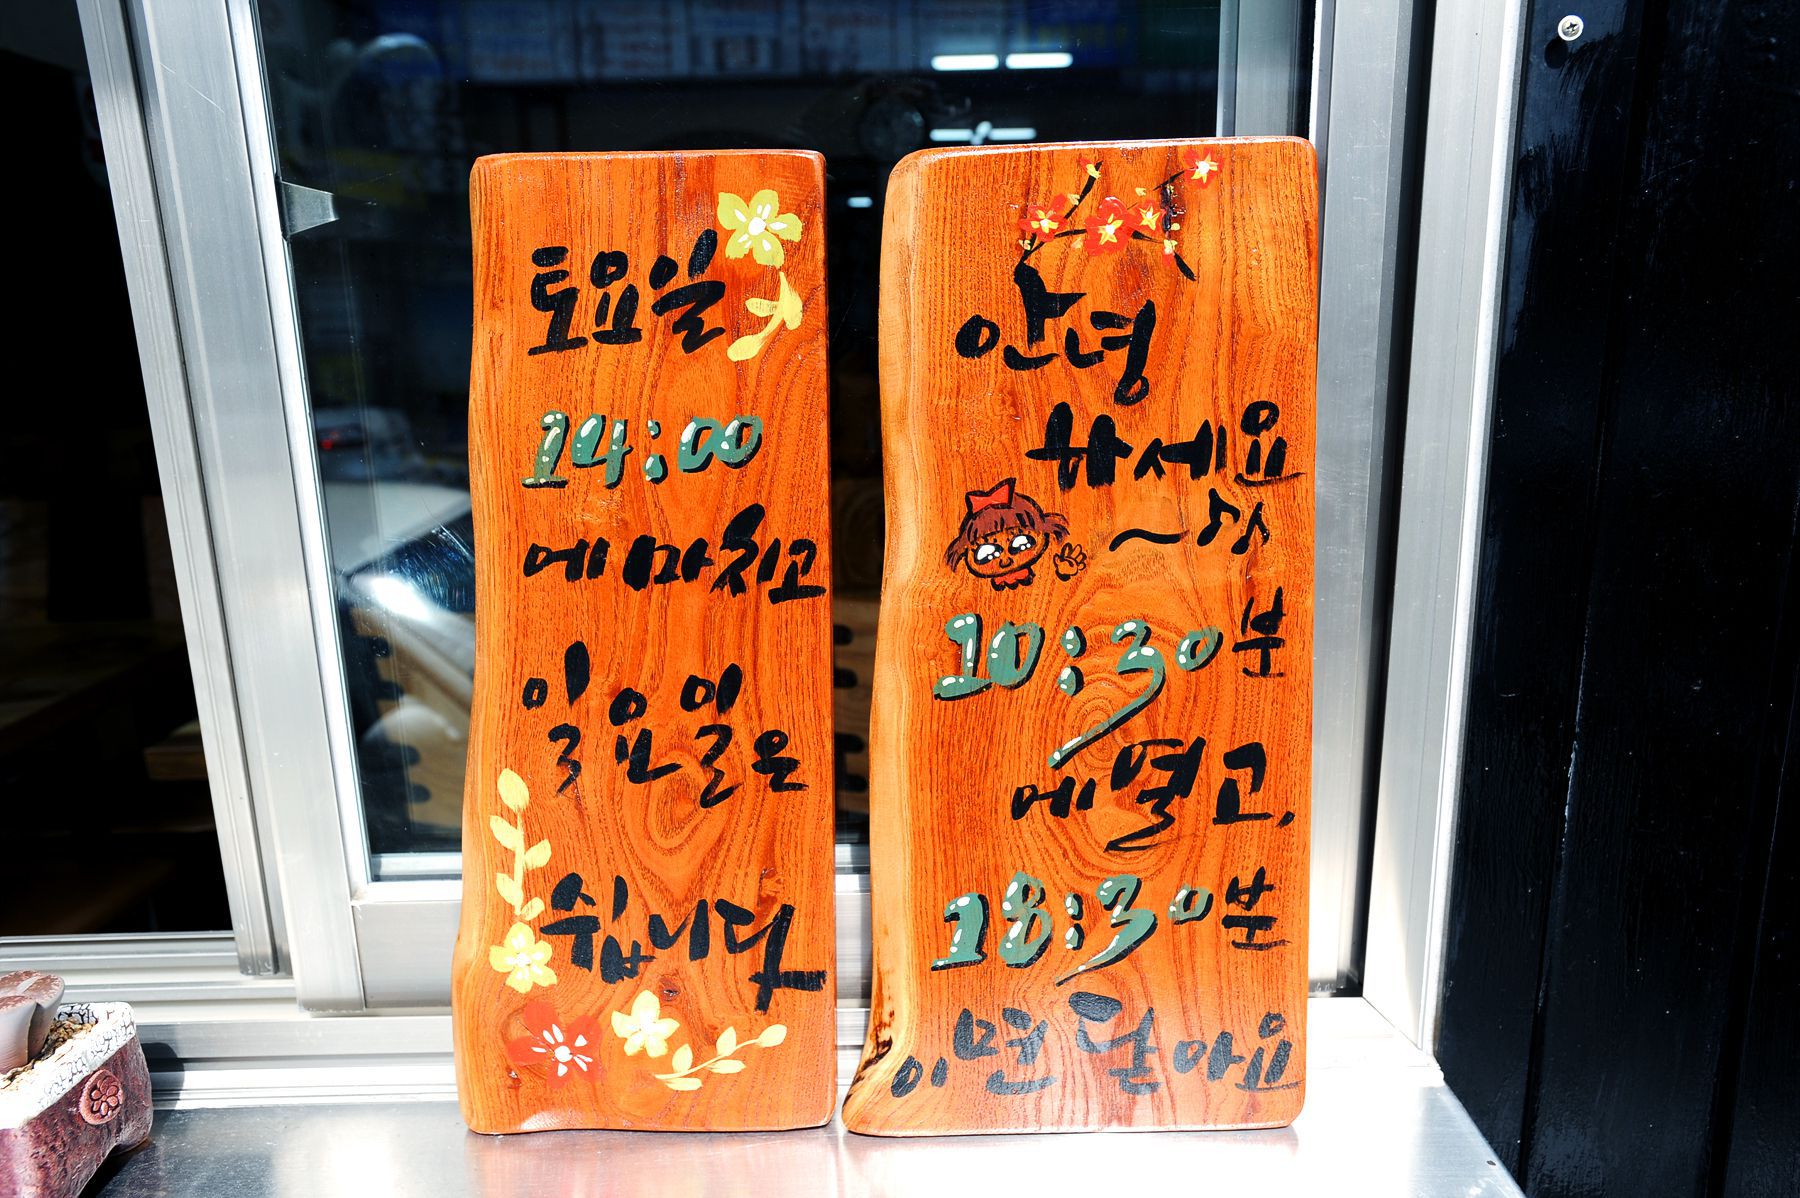 토요일
14:00
에 마치고
일요일은
쉽니다
안녕
하세요
~♪♪
10:30분
에 열고,
18:30분
이면 닫아요